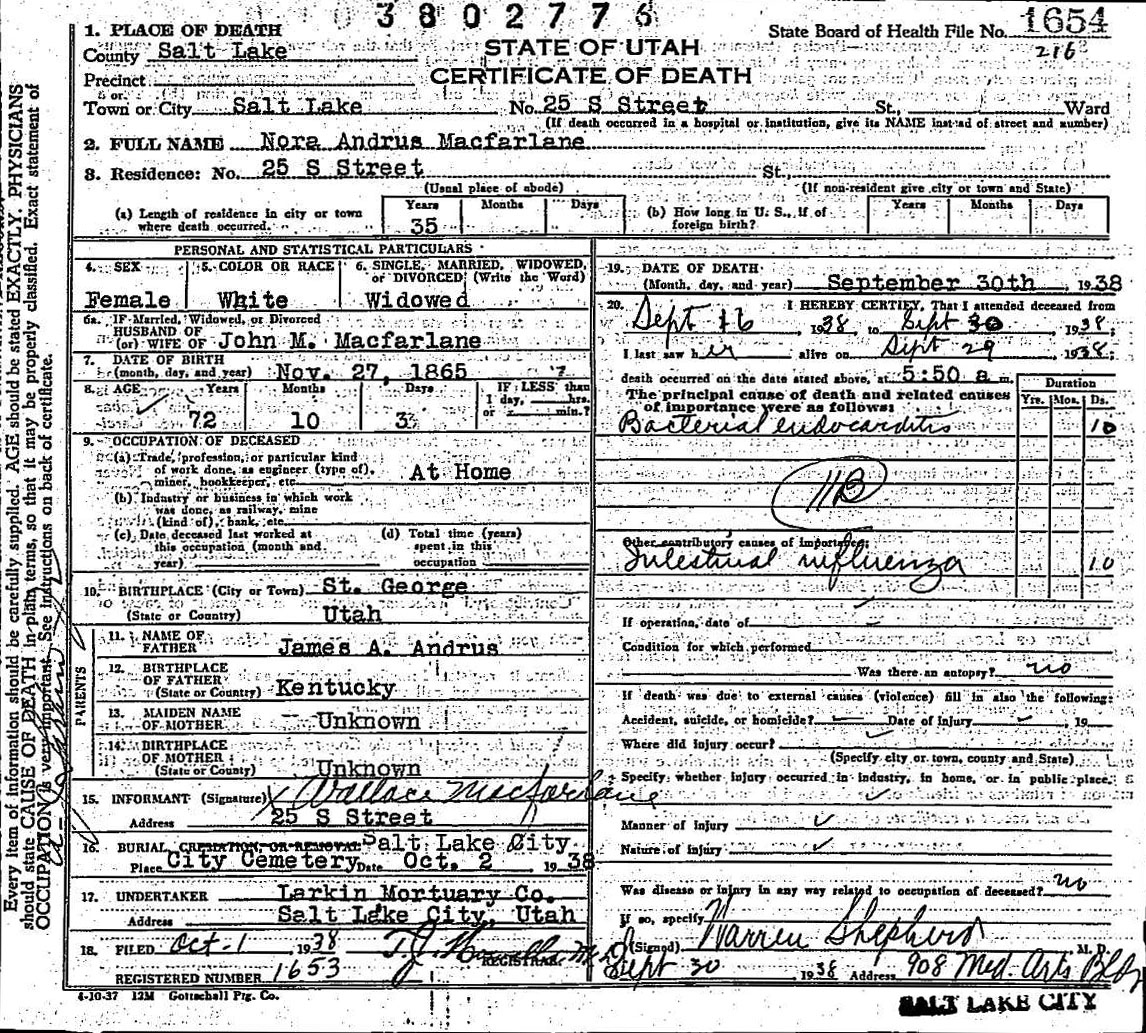 3802776
1. PLACE OF DEATH
County Salt Lake
STATE OF UTAH
CERTIFICATE OF DEATH
State Board of Health File No. 1654
216
Precinct
or
Town or City Salt Lake No. 25 S Street St., Ward
(If death occurred in a hospital or institution, give its NAME instead of street and number)
2. FULL NAME Nora Andrus Macfarlane
3. Residence: No. 25 S Street St.,
(Usual place of abode) (If non-resident give city or town and State)
(a) Length of residence in city or town where death occurred. Years 35 Months Days
(b) How long in U. S., if of foreign birth? Years Months Days
PERSONAL AND STATISTICAL PARTICULARS
4. SEX Female
5. COLOR OR RACE White
6. SINGLE, MARRIED, WIDOWED, or DIVORCED (Write the Word) Widowed
6a. IF Married, Widowed, or Divorced
HUSBAND OF
(or) WIFE OF John M. Macfarlane
7. DATE OF BIRTH
(month, day, and year) Nov. 27, 1865
8. AGE Years 72 Months 10 Days 3
IF LESS than
1 day, hrs.
or min.?
9. OCCUPATION OF DECEASED
(a) Trade, profession, or particular kind
of work done, as engineer (type of),
miner, bookkeeper, etc. At Home
(b) Industry or business in which work
was done, as railway, mine
(kind of), bank, etc.
(c) Date deceased last worked at
this occupation (month and
year)
(d) Total time (years)
spent in this
occupation
10. BIRTHPLACE (City or Town) St. George
(State or Country) Utah
PARENTS
11. NAME OF
FATHER James A. Andrus
12. BIRTHPLACE
OF FATHER
(State or Country) Kentucky
13. MAIDEN NAME
OF MOTHER Unknown
14. BIRTHPLACE
OF MOTHER
(State or County) Unknown
15. INFORMANT (Signature) Wallace Macfarlane
Address 25 S Street
16. BURIAL, CREMATION, OR REMOVAL Salt Lake City
Place City Cemetery Date Oct. 2 1938
17. UNDERTAKER Larkin Mortuary Co.
Address Salt Lake City, Utah
18. FILED Oct-1 1938 T.J. M.D.
REGISTRAR
REGISTERED NUMBER 1653
4-10-37 12M Gottschall Ptg. Co.
19. DATE OF DEATH
(Month, day, and year) September 30th, 1938
20. I HEREBY CERTIFY, That I attended deceased from
Sept 16, 1938, to Sept 30, 1938;
I last saw her alive on Sept 29 1938;
death occurred on the date stated above, at 5:50 a m.
Duration
Yrs. Mos. Ds.
The principal cause of death and related causes
of importance were as follows:
Bacterial endocarditis 10
11B
Other contributory causes of importance:
Intestinal influenza 10
If operation, date of
Condition for which performed
Was there an autopsy? no
If death was due to external causes (violence) fill in also the following:
Accident, suicide, or homicide? Date of injury , 19
Where did injury occur?
(Specify city or town, county and State)
Specify whether injury occurred in industry, in home, or in public place,
Manner of injury
Nature of injury
Was disease or injury in any way related to occupation of deceased? no
If so, specify
(Signed) Warren Shepherd M. D.
Sept 30 1938 Address 908 Med. Arts Bldg
SALT LAKE CITY
Every item of information should be carefully supplied. AGE should be stated EXACTLY. PHYSICIANS
should state CAUSE OF DEATH in plain terms, so that it may be properly classified. Exact statement of
OCCUPATION is very important. See instructions on back of certificate.